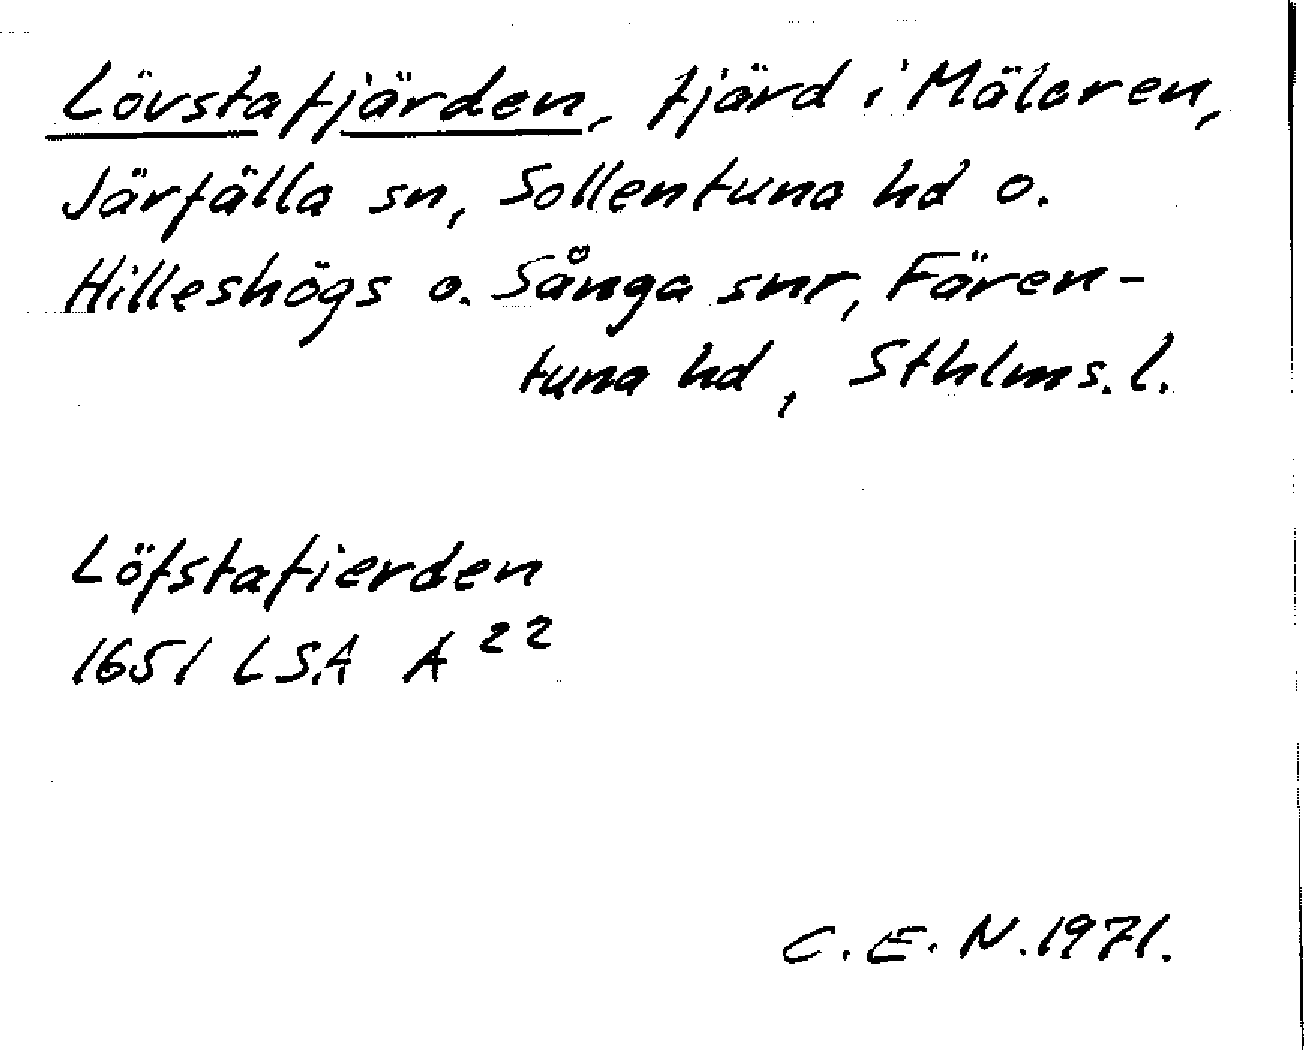 Lövstafjärden, fjärd i Mälaren,
Järfälla sn, Sollentuna hd o.
Hilleshögs o. Sånga snr, Fären-
tuna hd, Sthlms. l.
Löfstafierden
1651 LSA A 22
C. E. N. 1971.